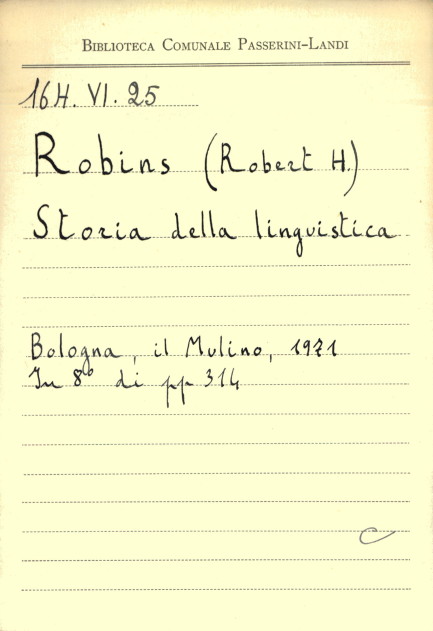 BIBLIOTECA COMUNALE PASSERINI-LANDI
16H. VI. 25
Robins (Robert H.)
Storia della linguistica
Bologna, il Mulino, 1971
In 8° di pp 314
C